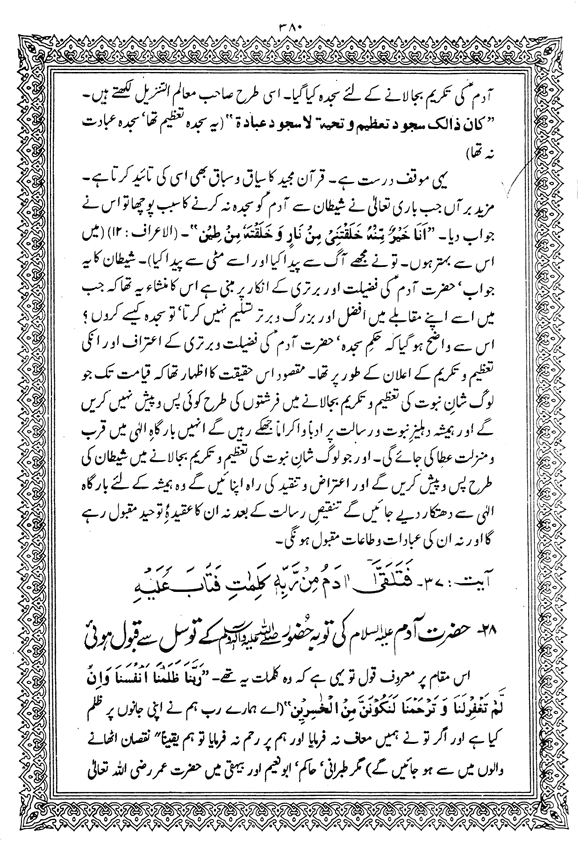 ۳۸۰
آدمؑ کی تکریم بجالانے کے لئے سجدہ کیا گیا۔ اسی طرح صاحب معالم التنزیل لکھتے ہیں۔
”کان ذالک سجود تعظیم و تحیۃ لا سجود عبادۃ“ (یہ سجدہ تعظیم تھا‘ سجدہ عبادت
نہ تھا)
یہی موقف درست ہے۔ قرآن مجید کا سیاق و سباق بھی اسی کی تائید کرتا ہے۔
مزید برآں جب باری تعالیٰ نے شیطان سے آدمؑ کو سجدہ نہ کرنے کا سبب پوچھا تو اس نے
جواب دیا۔ ”اَنَا خَیْرٌ مِّنْهُ خَلَقْتَنِیْ مِنْ نَّارٍ وَّ خَلَقْتَهٗ مِنْ طِیْنٍ“۔ (الاعراف : ۱۲) (میں
اس سے بہتر ہوں۔ تو نے مجھے آگ سے پیدا کیا اور اسے مٹی سے پیدا کیا)۔ شیطان کا یہ
جواب‘ حضرت آدمؑ کی فضیلت اور برتری کے انکار پر مبنی ہے اس کا منشاء یہ تھا کہ جب
میں اسے اپنے مقابلے میں افضل اور بزرگ و برتر تسلیم نہیں کرتا‘ تو سجدہ کیسے کروں ؟
اس سے واضح ہو گیا کہ حکم سجدہ‘ حضرت آدمؑ کی فضیلت و برتری کے اعتراف اور انکی
تعظیم و تکریم کے اعلان کے طور پر تھا۔ مقصود اس حقیقت کا اظہار تھا کہ قیامت تک جو
لوگ شانِ نبوت کی تعظیم و تکریم بجالانے میں فرشتوں کی طرح کوئی پس و پیش نہیں کریں
گے اور ہمیشہ دہلیزِ نبوت و رسالت پر ادباً و اکراماً جھکے رہیں گے انہیں بارگاہِ الٰہی میں قرب
و منزلت عطا کی جائے گی۔ اور جو لوگ شانِ نبوت کی تعظیم و تکریم بجالانے میں شیطان کی
طرح پس و پیش کریں گے اور اعتراض و تنقید کی راہ اپنائیں گے وہ ہمیشہ کے لئے بارگاہ
الٰہی سے دھتکار دیے جائیں گے تنقیصِ رسالت کے بعد نہ ان کا عقیدۂ توحید مقبول رہے
گا اور نہ ان کی عبادات و طاعات مقبول ہو نگی۔
آیت : ۳۷- فَتَلَقّٰۤی اٰدَمُ مِنْ رَّبِّهٖ كَلِمٰتٍ فَتَابَ عَلَیْهِ
۲۸- حضرت آدم علیہ السلام کی توبہ حضور صلی اللہ علیہ وآلہ وسلم کے توسل سے قبول ہوئی
اس مقام پر معروف قول تو یہی ہے کہ وہ کلمات یہ تھے۔ ”رَبَّنَا ظَلَمْنَا اَنْفُسَنَا وَاِنْ
لَّمْ تَغْفِرْلَنَا وَ تَرْحَمْنَا لَنَكُوْنَنَّ مِنَ الْخٰسِرِیْنَ“ (اے ہمارے رب ہم نے اپنی جانوں پر ظلم
کیا ہے اور اگر تو نے ہمیں معاف نہ فرمایا اور ہم پر رحم نہ فرمایا تو ہم یقیناً نقصان اٹھانے
والوں میں سے ہو جائیں گے) مگر طبرانی‘ حاکم‘ ابونعیم اور بیہقی میں حضرت عمر رضی اللہ تعالیٰ